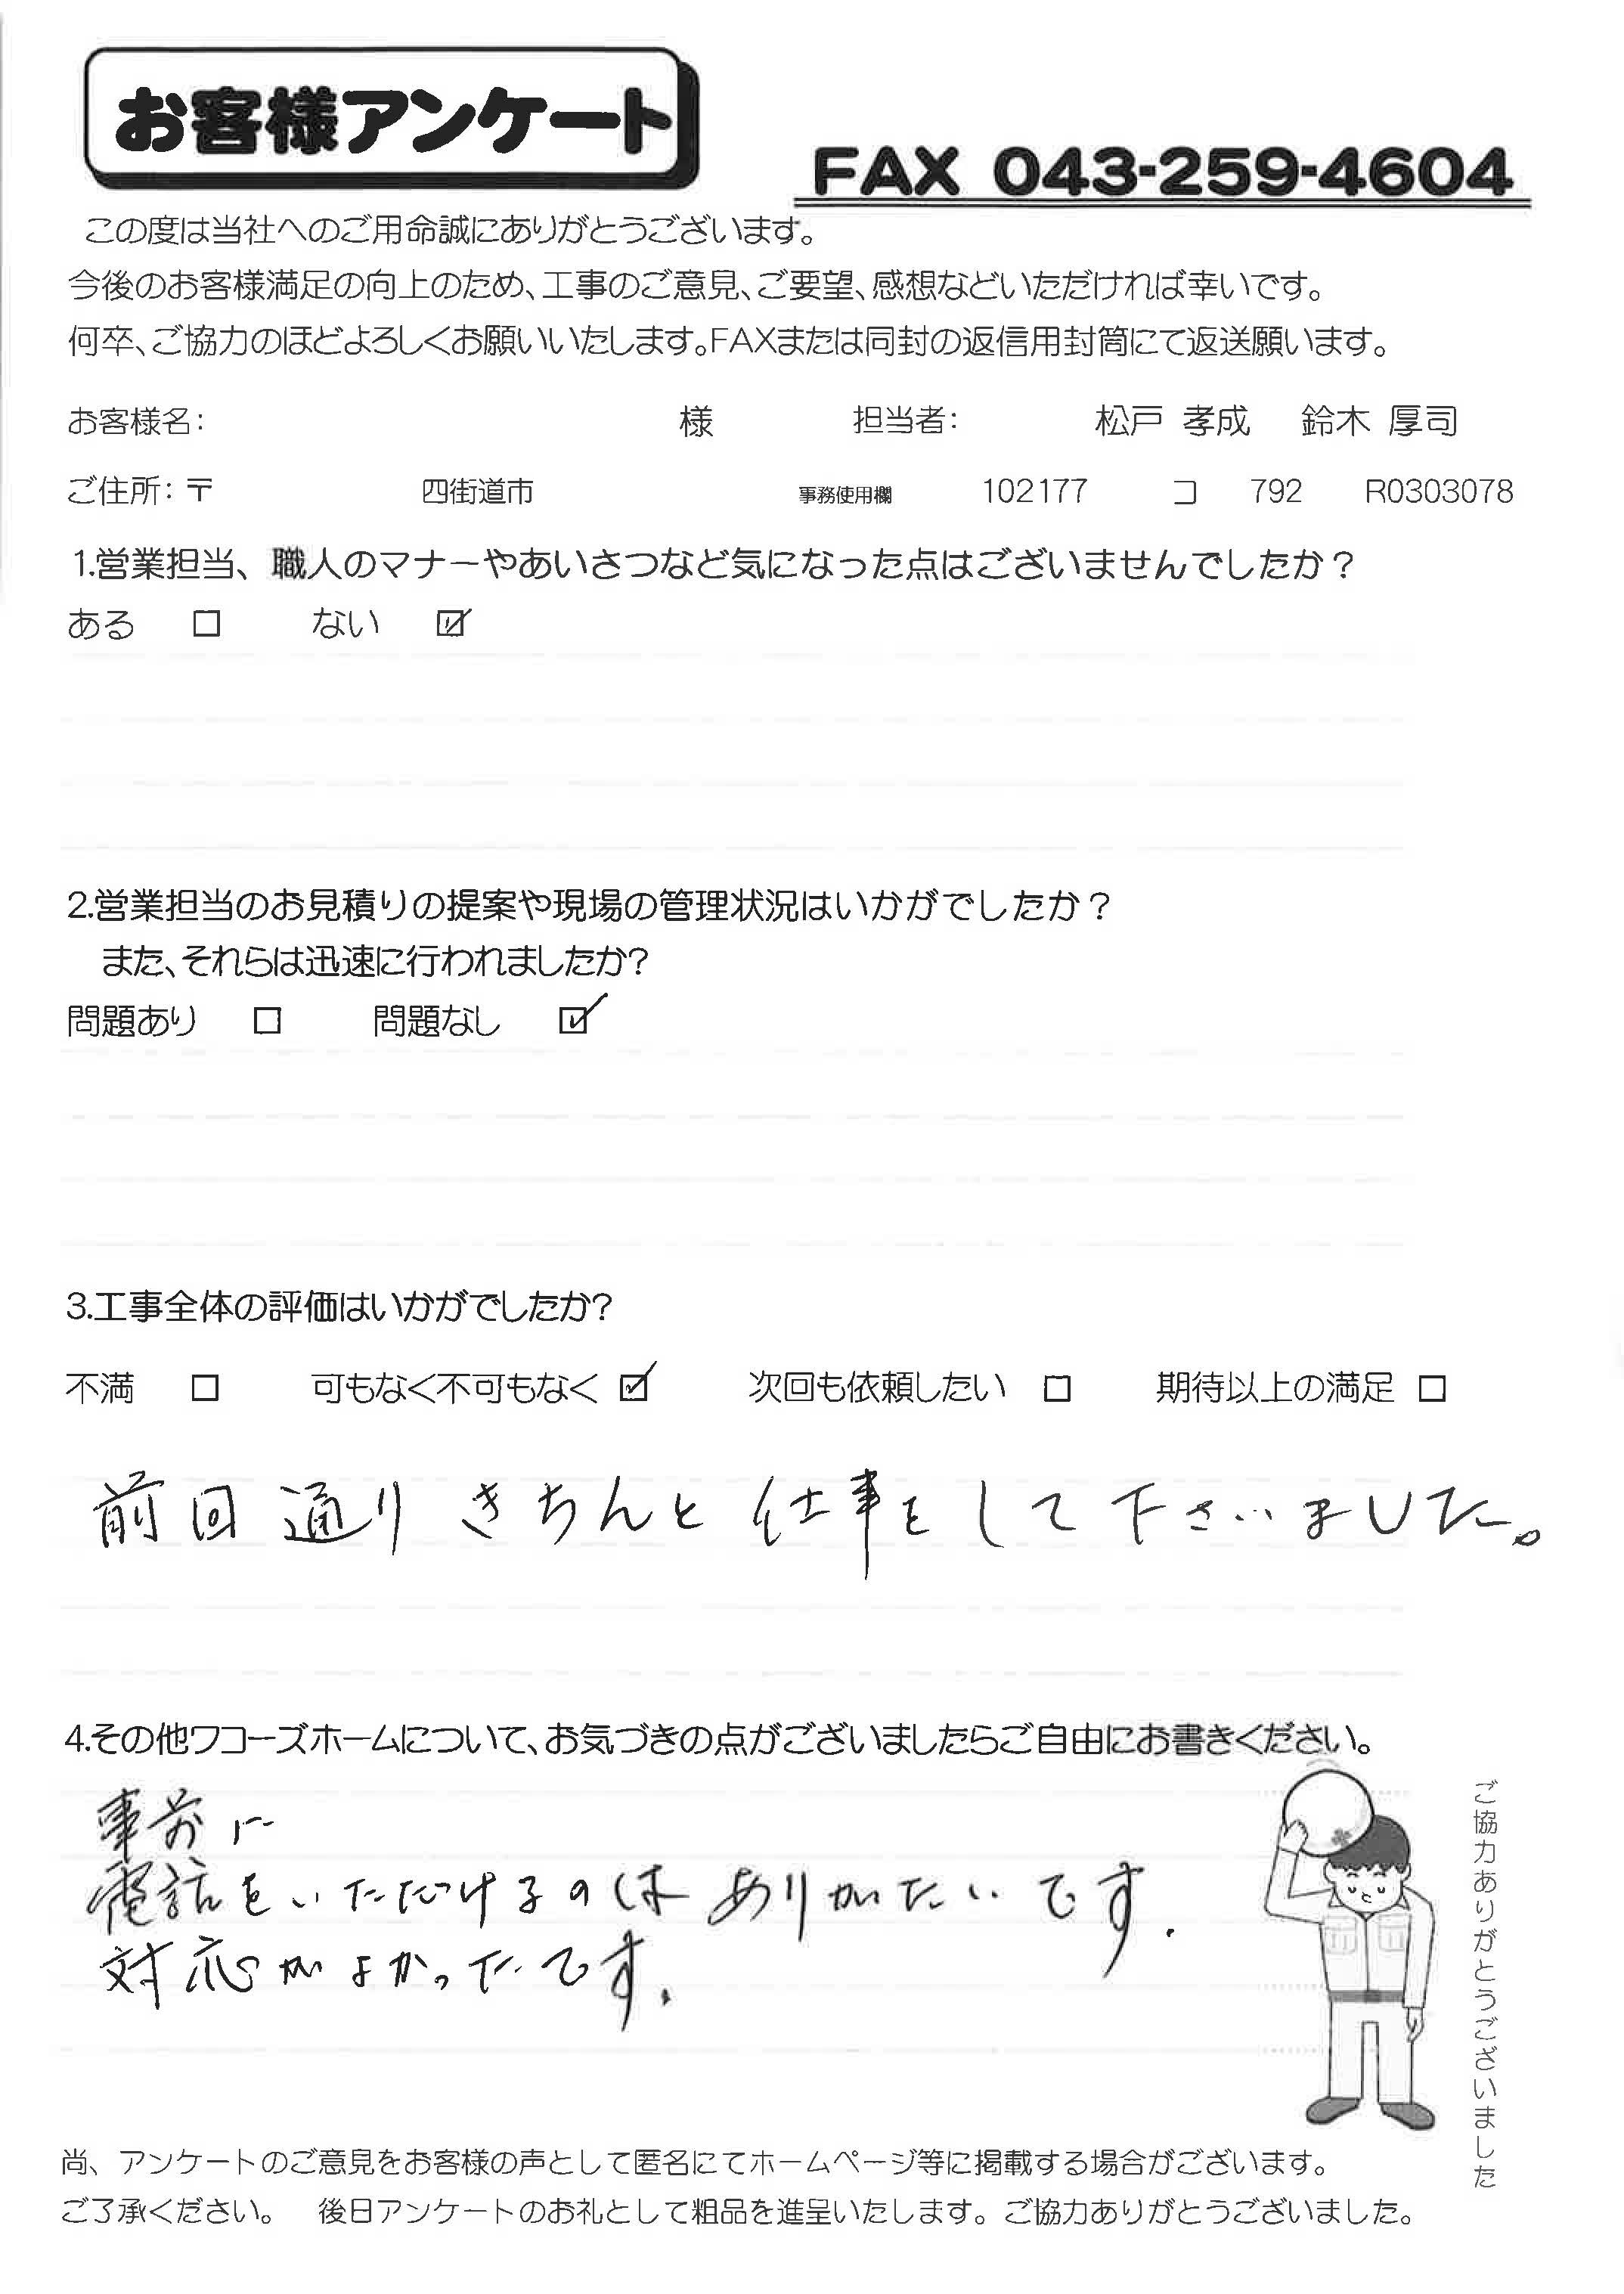 お客様アンケート
FAX 043-259-4604
この度は当社へのご用命誠にありがとうございます。
今後のお客様満足の向上のため、工事のご意見、ご要望、感想などいただければ幸いです。
何卒、ご協力のほどよろしくお願いいたします。FAXまたは同封の返信用封筒にて返送願います。
お客様名： 様 担当者： 松戸 孝成 鈴木 厚司
ご住所：〒 四街道市 事務使用欄 102177 コ 792 R0303078
1.営業担当、職人のマナーやあいさつなど気になった点はございませんでしたか？
ある □ ない ☑
2.営業担当のお見積りの提案や現場の管理状況はいかがでしたか？
また、それらは迅速に行われましたか？
問題あり □ 問題なし ☑
3.工事全体の評価はいかがでしたか？
不満 □ 可もなく不可もなく ☑ 次回も依頼したい □ 期待以上の満足 □
前回通りきちんと仕事をして下さいました。
4.その他ワコーズホームについて、お気づきの点がございましたらご自由にお書きください。
事前に
電話をいただけるのはありがたいです.
対応がよかったです.
ご協力ありがとうございました
尚、アンケートのご意見をお客様の声として匿名にてホームページ等に掲載する場合がございます。
ご了承ください。 後日アンケートのお礼として粗品を進呈いたします。ご協力ありがとうございました。